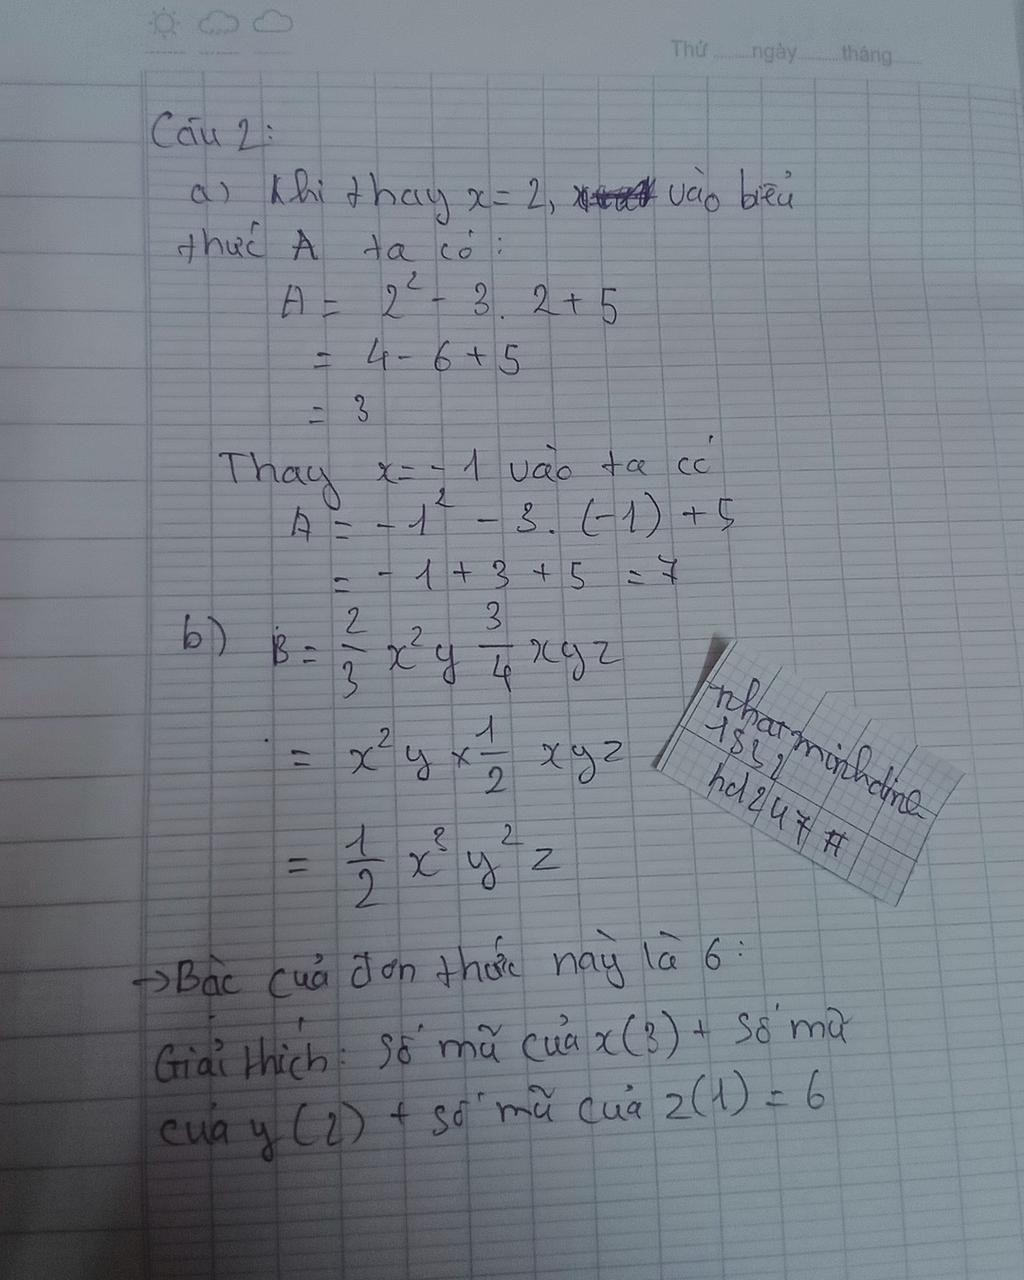 Thứ ngày tháng
Câu 2:
a) Khi thay x = 2, vào biểu
thức A ta có:
A = 2² - 3. 2 + 5
= 4 - 6 + 5
= 3
Thay x = -1 vào ta có
A = -1² - 3. (-1) + 5
= - 1 + 3 + 5 = 7
b) B = 2/3 x² y 3/4 x y z
= x² y × 1/2 x y z
= 1/2 x³ y² z
→ Bậc của đơn thức này là 6:
Giải thích: số mũ của x (3) + số mũ
của y (2) + số mũ của z (1) = 6
hd247 #